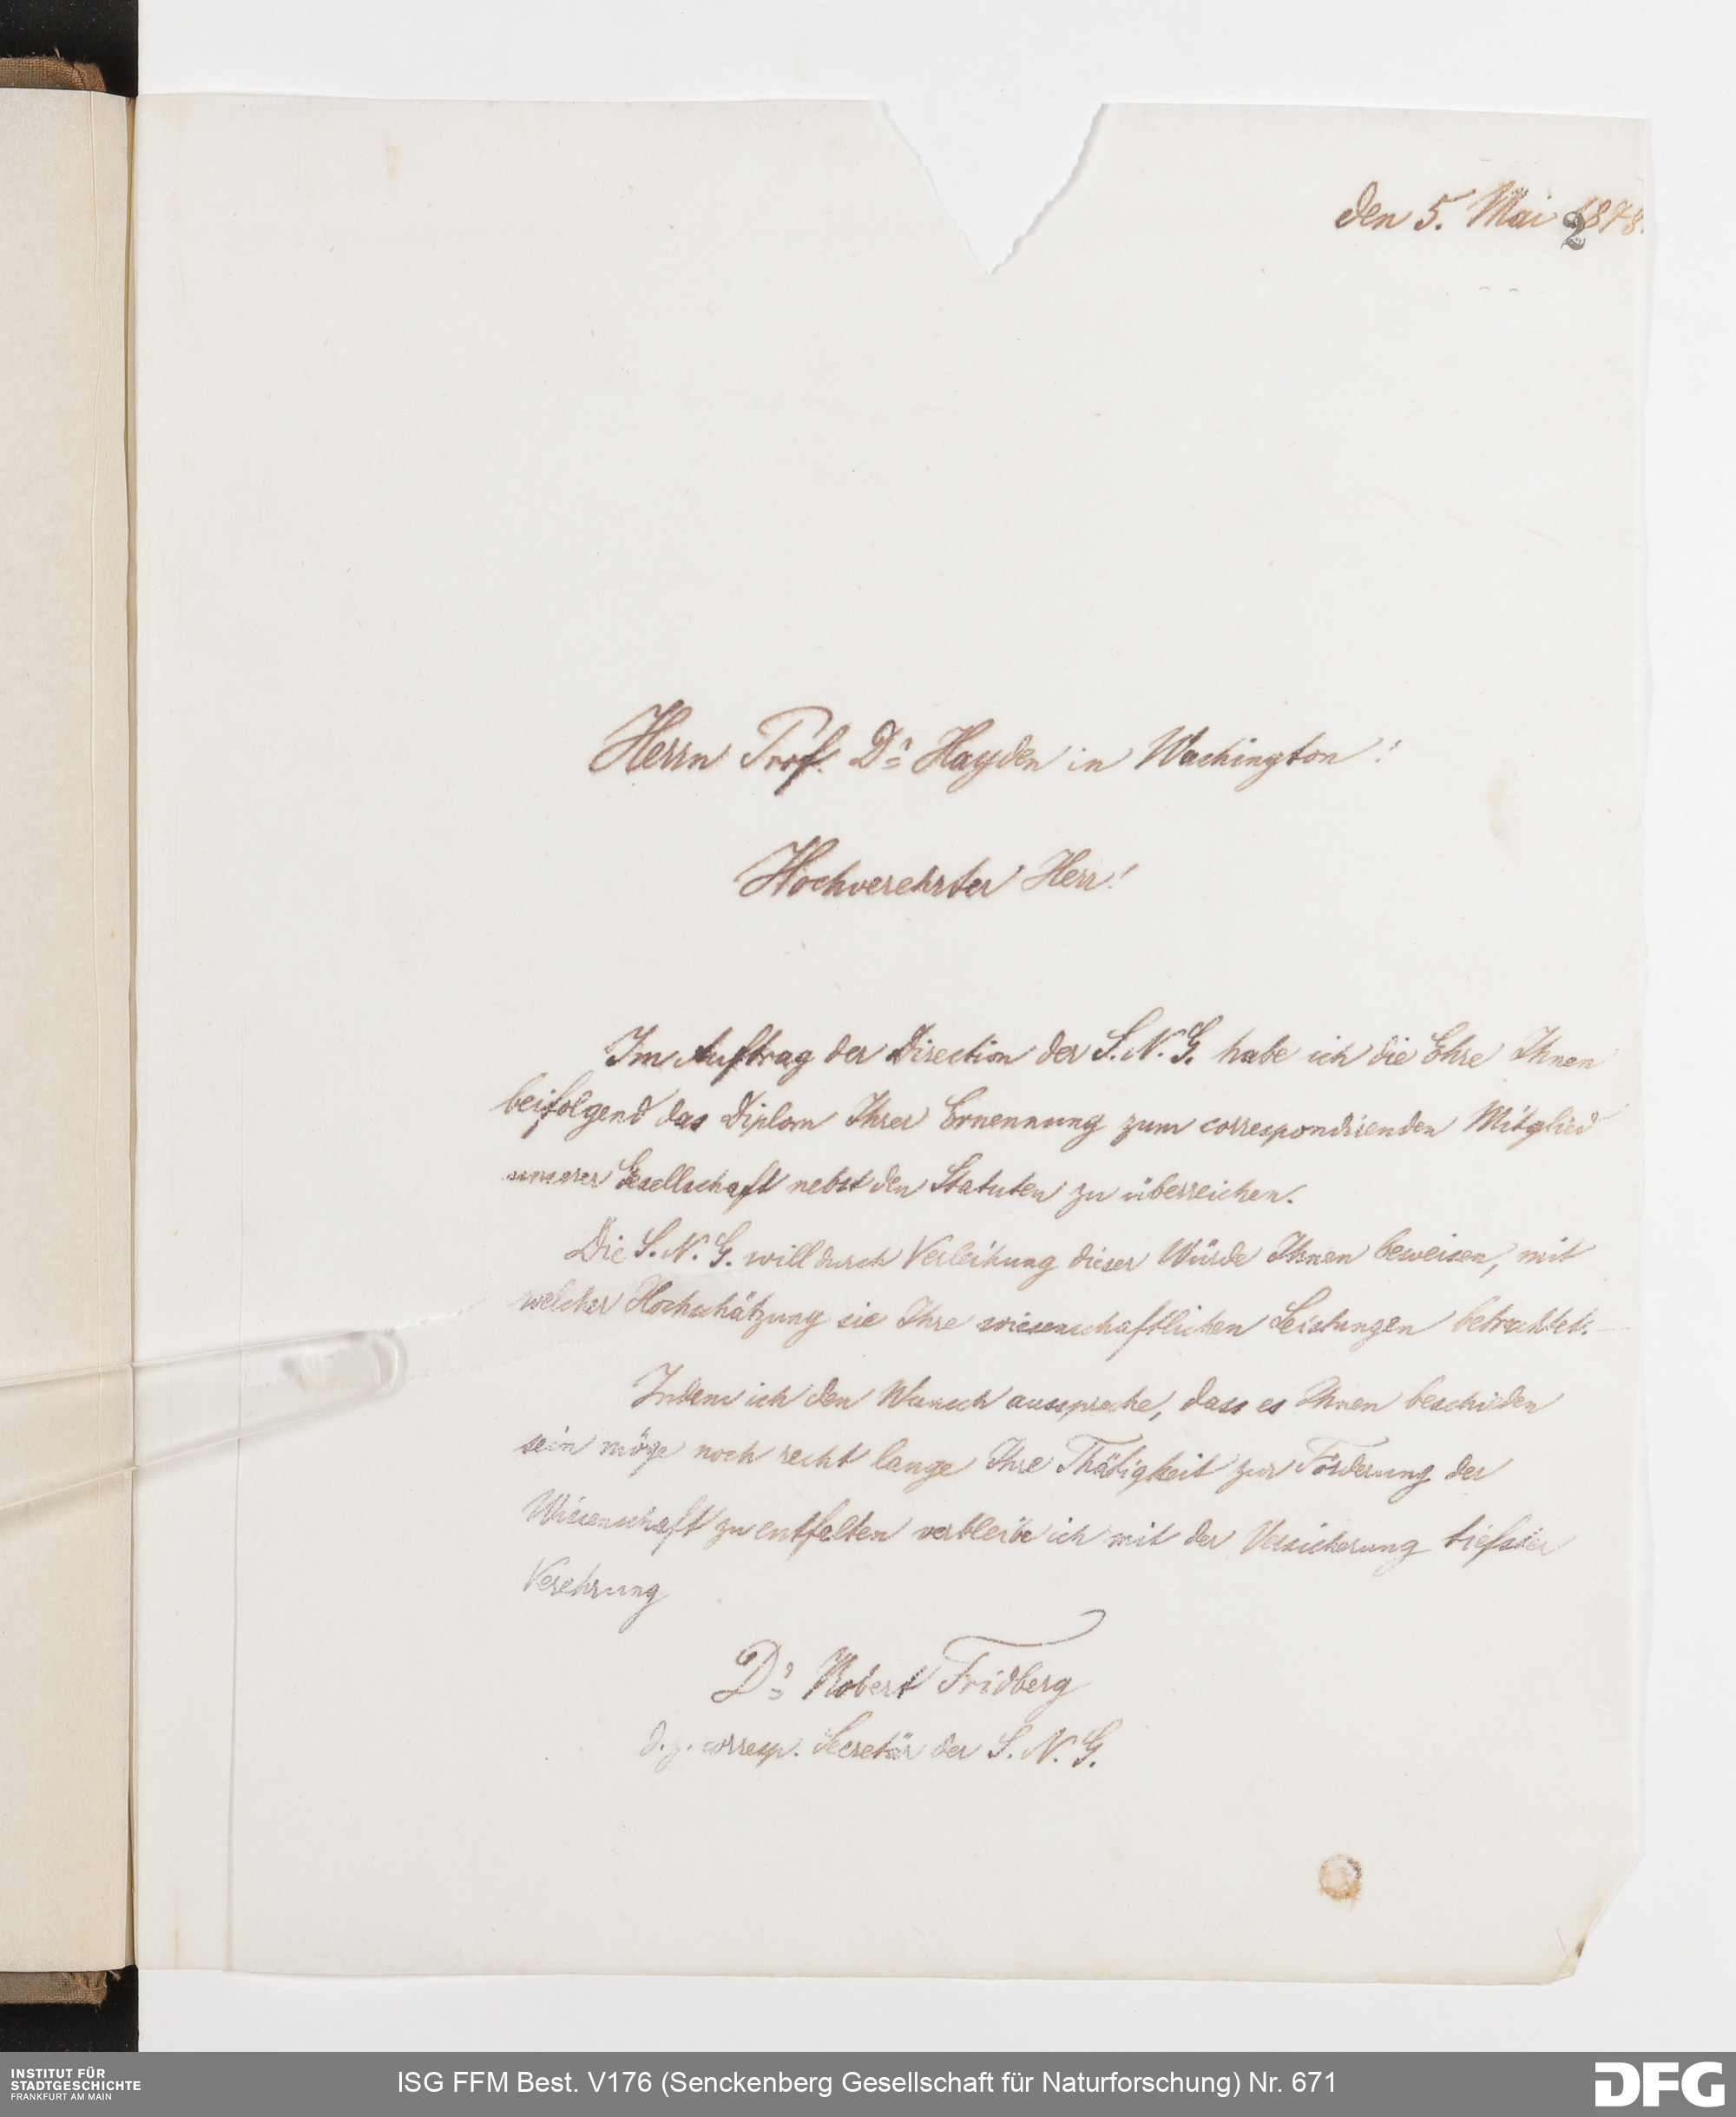 den 5. Mai 1878.
2
Herrn Prof. Dr Hayden in Wachington!
Hochverehrter Herr!
Im Auftrag der Direction der S. N. G. habe ich die Ehre Ihnen
beifolgend das Diplom Ihrer Ernennung zum correspondirenden Mitglied
unserer Gesellschaft nebst den Statuten zu überreichen.
Die S. N. G. will durch Verleihung dieser Würde Ihnen beweisen, mit
welcher Hochschätzung sie Ihre wissenschaftlichen Leistungen betrachtet.
Indem ich den Wunsch ausspreche, dass es Ihnen beschieden
sein möge noch recht lange Ihre Thätigkeit zur Förderung der
Wissenschaft zu entfalten verbleibe ich mit der Versicherung tiefster
Verehrung
Dr Robert Fridberg
d. z. corresp. Secretär der S. N. G.
INSTITUT FÜR
STADTGESCHICHTE
FRANKFURT AM MAIN
ISG FFM Best. V176 (Senckenberg Gesellschaft für Naturforschung) Nr. 671
DFG